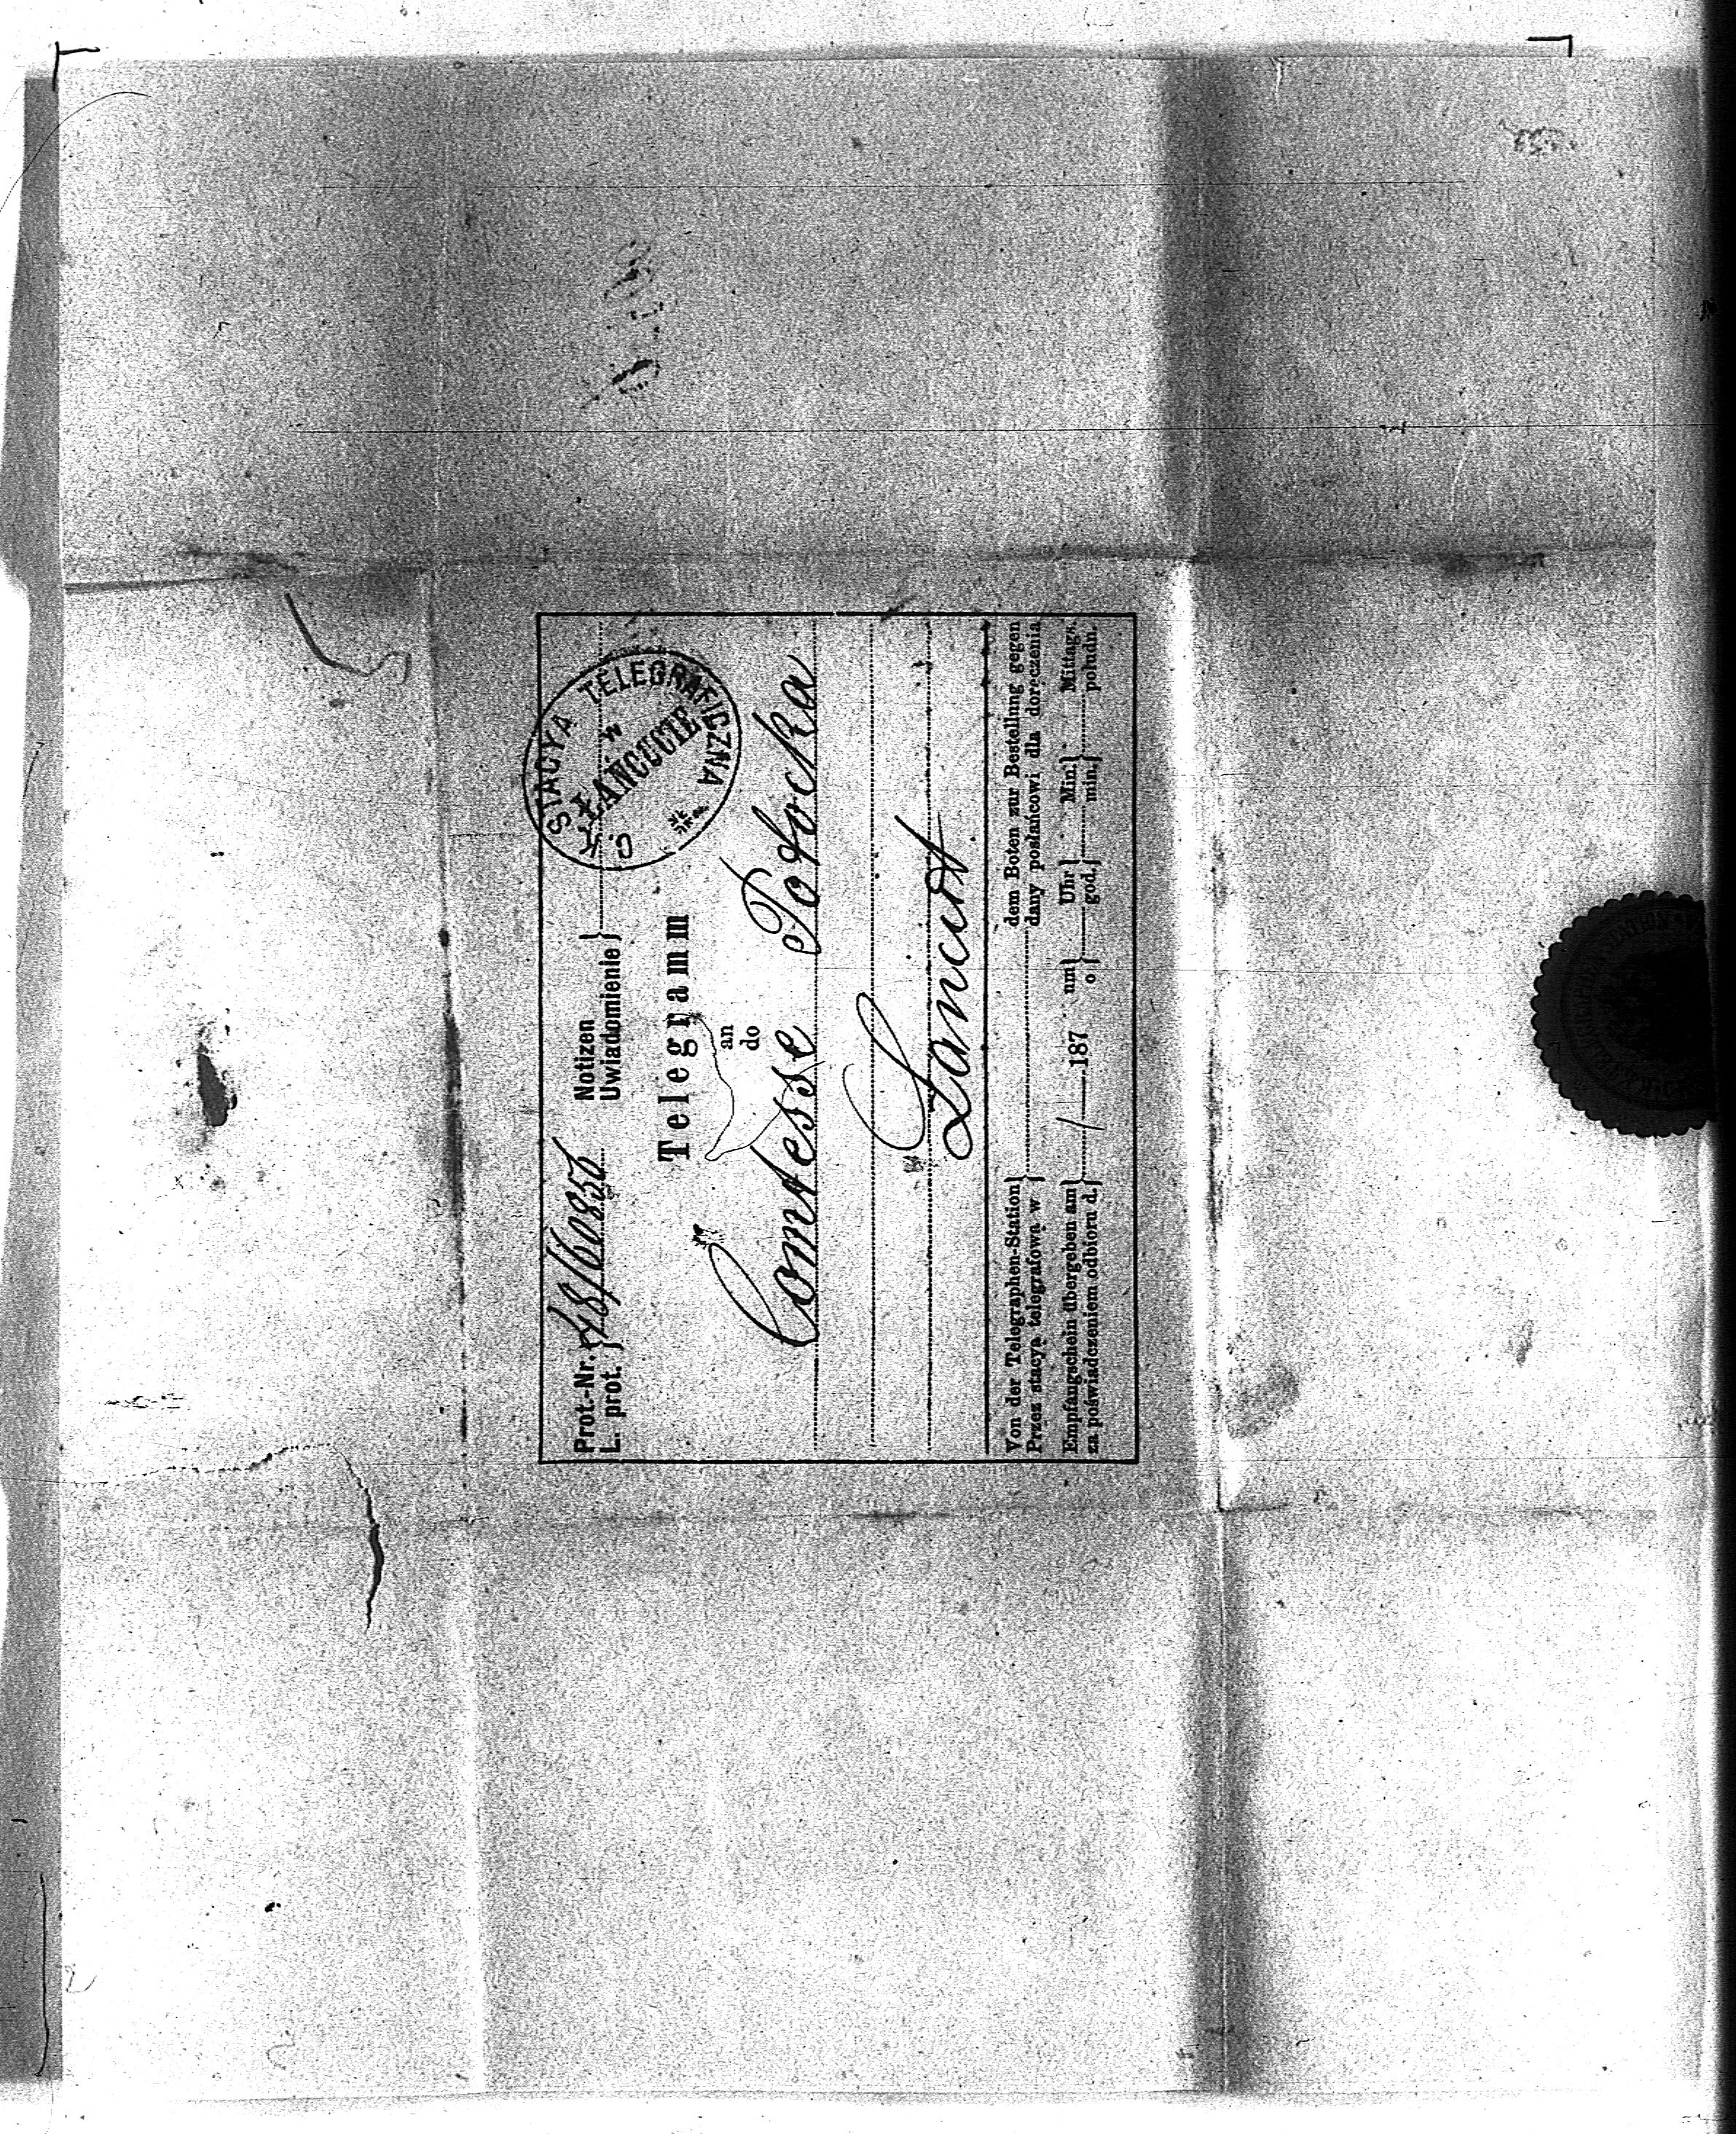 Prot-Nr.
L. prot.
Notizen
Uwiadomienie
C. K. STACYA TELEGRAFICZNA
w
ŁAŃCUCIE
Telegramm
an
do
Comtesse Potocka
Lancut
Von der Telegraphen-Station dem Boten zur Bestellung gegen
Przez stacyą telegrafową w dany posłańcowi dla doręczenia
Empfangschein übergeben am 187 um Uhr Min. Mittags.
za poświadczeniem odbioru d. o god. min. południ.